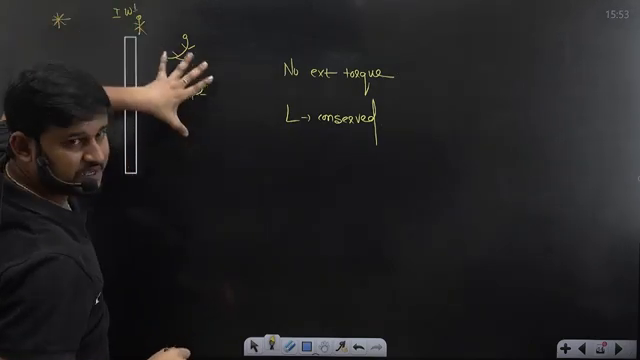 15:53
I W'
No ext torque
L → conserved